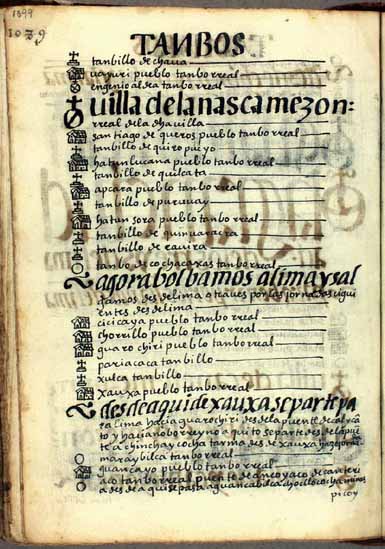 1099
1039
TANBOS
tanbillo de chaua
uayuri pueblo tanborreal
engenio aldea tanborreal
uilla de la nasca mezon:
rreal de la dha uilla
santiago de queros pueblo tanborreal
tanbillo de quiro pucyo
hatun lucana pueblo tanborreal
tanbillo de quilcata
apcara pueblo tanborreal
tanbillo de
hatun sora pueblo tanborreal
tanbillo de
tanbillo de
tanbo de cochacaxas tanborreal
agora bolbamos a lima y sal
gamos desde lima otraues por las jornadas cigui
entes desde lima
cicicaya pueblo tanborreal
chorrillo pueblo tanborreal
guarochiri pueblo tanborreal
pariacaca tanbillo
xulca tanbillo
xauxa pueblo tanborreal
desde aqui de xauxa se parte pa
ra lima hacia guarochiri desde la puente
y hacia nobo rreyno a quito se parte desde la pue
te a chinchaycocha tarma desde xauxa
maraybilca tanborreal
guancayo pueblo tanborreal
aco tanborreal puente de ancoyaco de
desde aqui se pasa a guancabilca choclococha
picoy